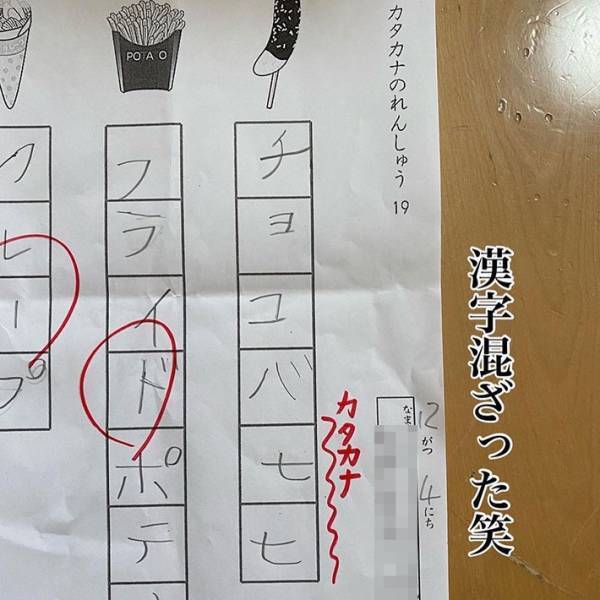 漢字混ざった笑
カタカナのれんしゅう 19
12がつ 4にち
なま
カタカナ
チョコバ七七
POTA O
フライドポテ
クレープ